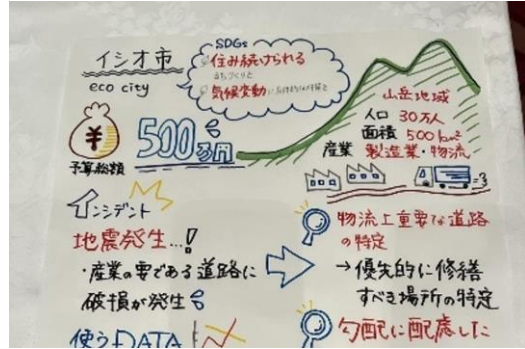 イシオ市
eco city
SDGs
住み続けられる
まちづくりを
気候変動に
¥
予算総額
500万円
山岳地域
人口 30万人
面積 500km²
産業 製造業・物流
インシデント
地震発生...!
・産業の要である道路に
破損が発生
物流上重要な道路
の特定
→優先的に修繕
すべき場所の特定
使うDATA
勾配に配慮した